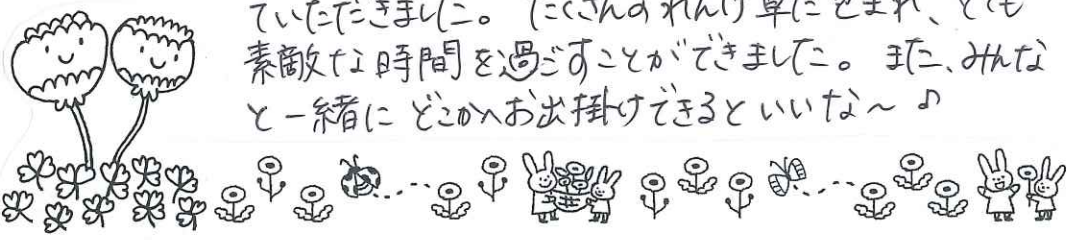 ていただきました。たくさんのれんげ草にかこまれ、とても
素敵な時間を過ごすことができました。また、みんな
と一緒に どこかへお出掛けできるといいな〜♪